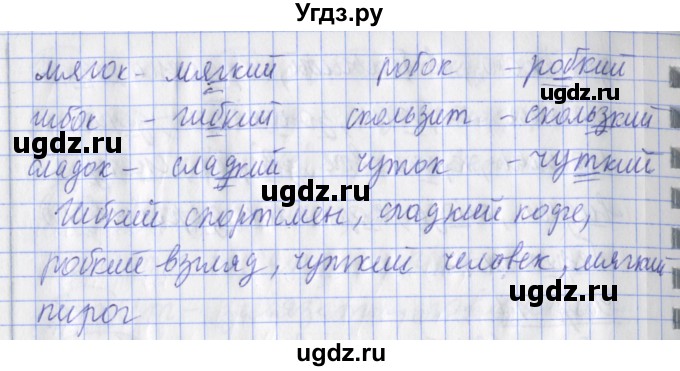 Угдз.ру
мягок - мягкий робок - робкий
гибок - гибкий скользит - скользкий
сладок - сладкий чуток - чуткий
Гибкий спортсмен, сладкий кофе,
робкий взгляд, чуткий человек, мягкий
пирог
ugdz.ru
ugdz.ru
ugdz.ru
ugdz.ru
ugdz.ru
ugdz.ru
ugdz.ru
ugdz.ru
ugdz.ru